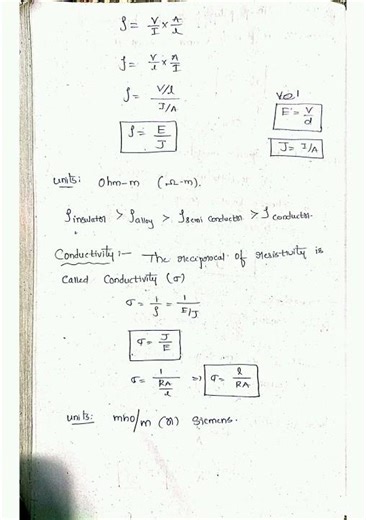 ρ = V/I × A/l
ρ = V/l × A/I
ρ = (V/l)/(I/A)
ρ = E/J
E = V/d
J = I/A
units: Ohm-m (Ω-m).
ρ insulator > ρ alloy > ρ semi conductor > ρ conductor.
Conductivity:- The reciprocal of resistivity is
called Conductivity (σ)
σ = 1/ρ = 1/(E/J)
σ = J/E
σ = 1/(RA/l) ⇒ σ = l/RA
units: mho/m (or) Siemens.